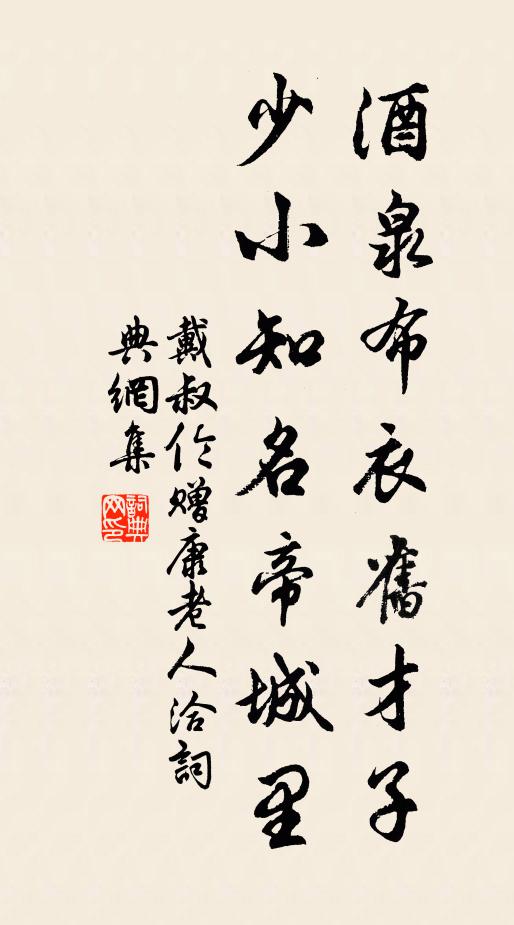 酒泉布衣舊才子
少小知名帝城里
戴叔伦赠康老人洽詞
典網集
詞典網印